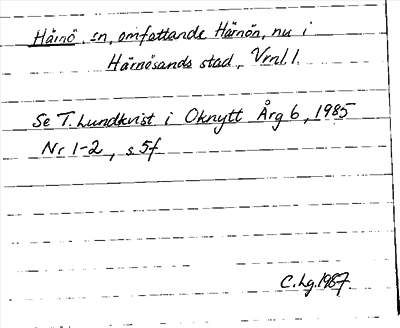 Härnö, sn, omfattande Härnön, nu i
Härnösands stad, Vrnl l.
Se T. Lundkvist i Oknytt Årg 6, 1985
Nr 1-2, s 5f
C. Lg. 1987.